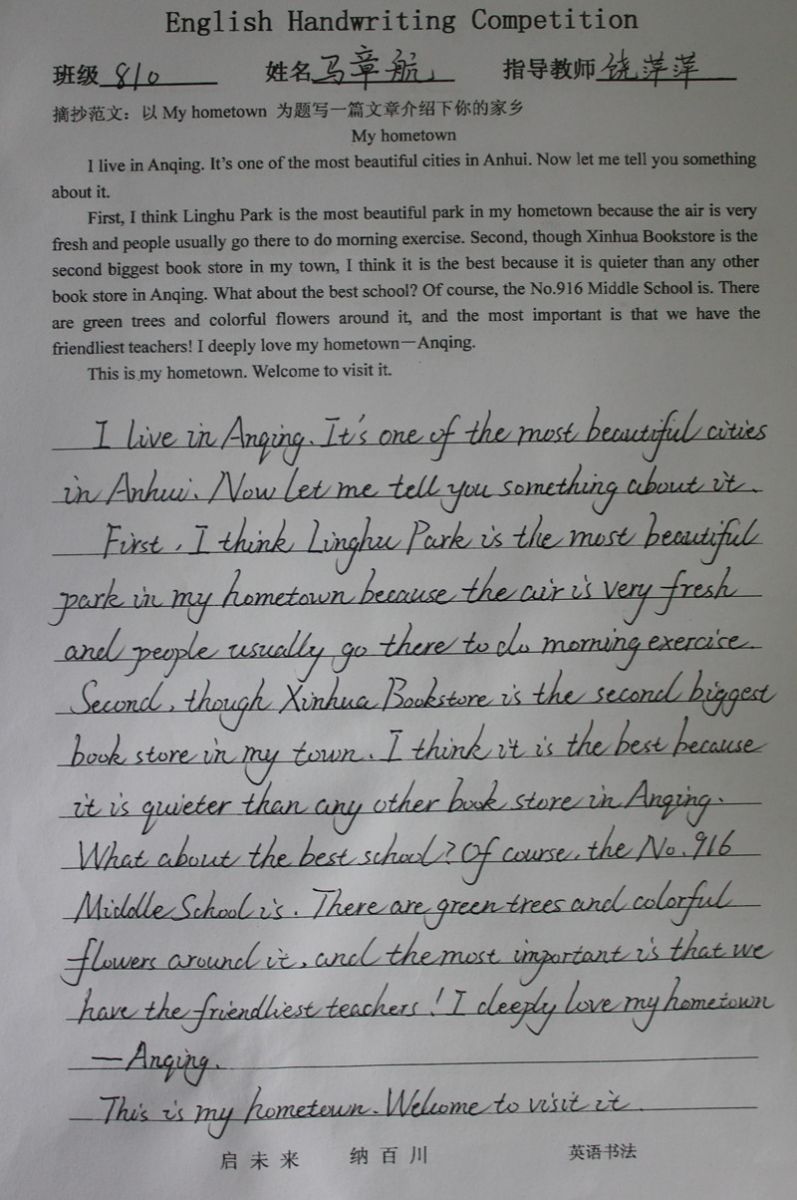 English Handwriting Competition
班级 810 姓名 马章航 指导教师 饶萍萍
摘抄范文：以 My hometown 为题写一篇文章介绍下你的家乡
My hometown
I live in Anqing. It's one of the most beautiful cities in Anhui. Now let me tell you something
about it.
First, I think Linghu Park is the most beautiful park in my hometown because the air is very
fresh and people usually go there to do morning exercise. Second, though Xinhua Bookstore is the
second biggest book store in my town, I think it is the best because it is quieter than any other
book store in Anqing. What about the best school? Of course, the No.916 Middle School is. There
are green trees and colorful flowers around it, and the most important is that we have the
friendliest teachers! I deeply love my hometown—Anqing.
This is my hometown. Welcome to visit it.
I live in Anqing. It's one of the most beautiful cities
in Anhui. Now let me tell you something about it.
First, I think Linghu Park is the most beautiful
park in my hometown because the air is very fresh
and people usually go there to do morning exercise.
Second, though Xinhua Bookstore is the second biggest
book store in my town, I think it is the best because
it is quieter than any other book store in Anqing.
What about the best school? Of course, the No.916
Middle School is. There are green trees and colorful
flowers around it, and the most important is that we
have the friendliest teachers! I deeply love my hometown
—Anqing.
This is my hometown. Welcome to visit it.
启未来 纳百川 英语书法